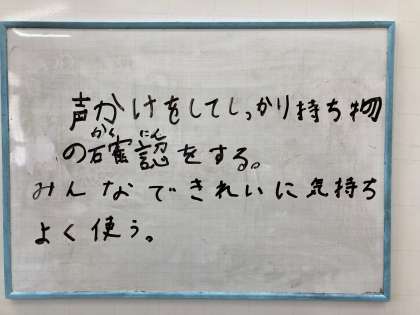 声かけをしてしっかり持ち物
の確認をする。
みんなできれいに気持ち
よく使う。